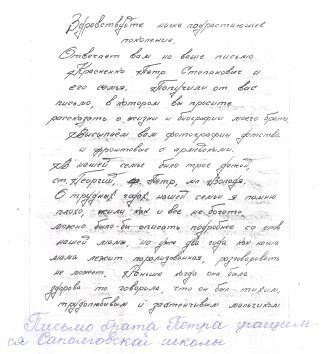 Здравствуйте наше подрастающее
поколение.
Отвечает вам на ваше письмо
Красненко Петр Степанович и
его семья. Получили от вас
письмо, в котором вы просите
рассказать о жизни и биографии моего брата
Высылаем вам фотографии детства
и фронтовые с армейскими.
В нашей семье было трое детей,
ст. Георгий, ср. Петр, мл. Володя.
О трудных годах нашей семьи я помню
плохо, жили как и все не богато,
можно было-бы описать подробнее со слов
нашей мамы, но уже два года как наша
мама лежит парализованная, разговаривать
не может. Раньше когда она была
здорова то говорила, что он был тихим,
трудолюбивым и застенчивым мальчиком
Письмо брата Петра учащим-
ся школы